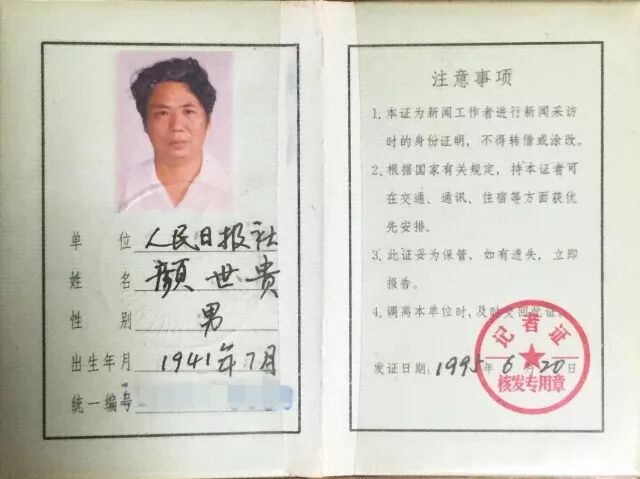 单位 人民日报社
姓名 颜世贵
性别 男
出生年月 1941年7月
统一编号
注意事项
1. 本证为新闻工作者进行新闻采访
时的身份证明，不得转借或涂改。
2. 根据国家有关规定，持本证者可
在交通、通讯、住宿等方面获优
先安排。
3. 此证妥为保管，如有遗失，立即
报告。
4. 调离本单位时，及时交回此证。
发证日期：1995年6月20日
记者证
核发专用章